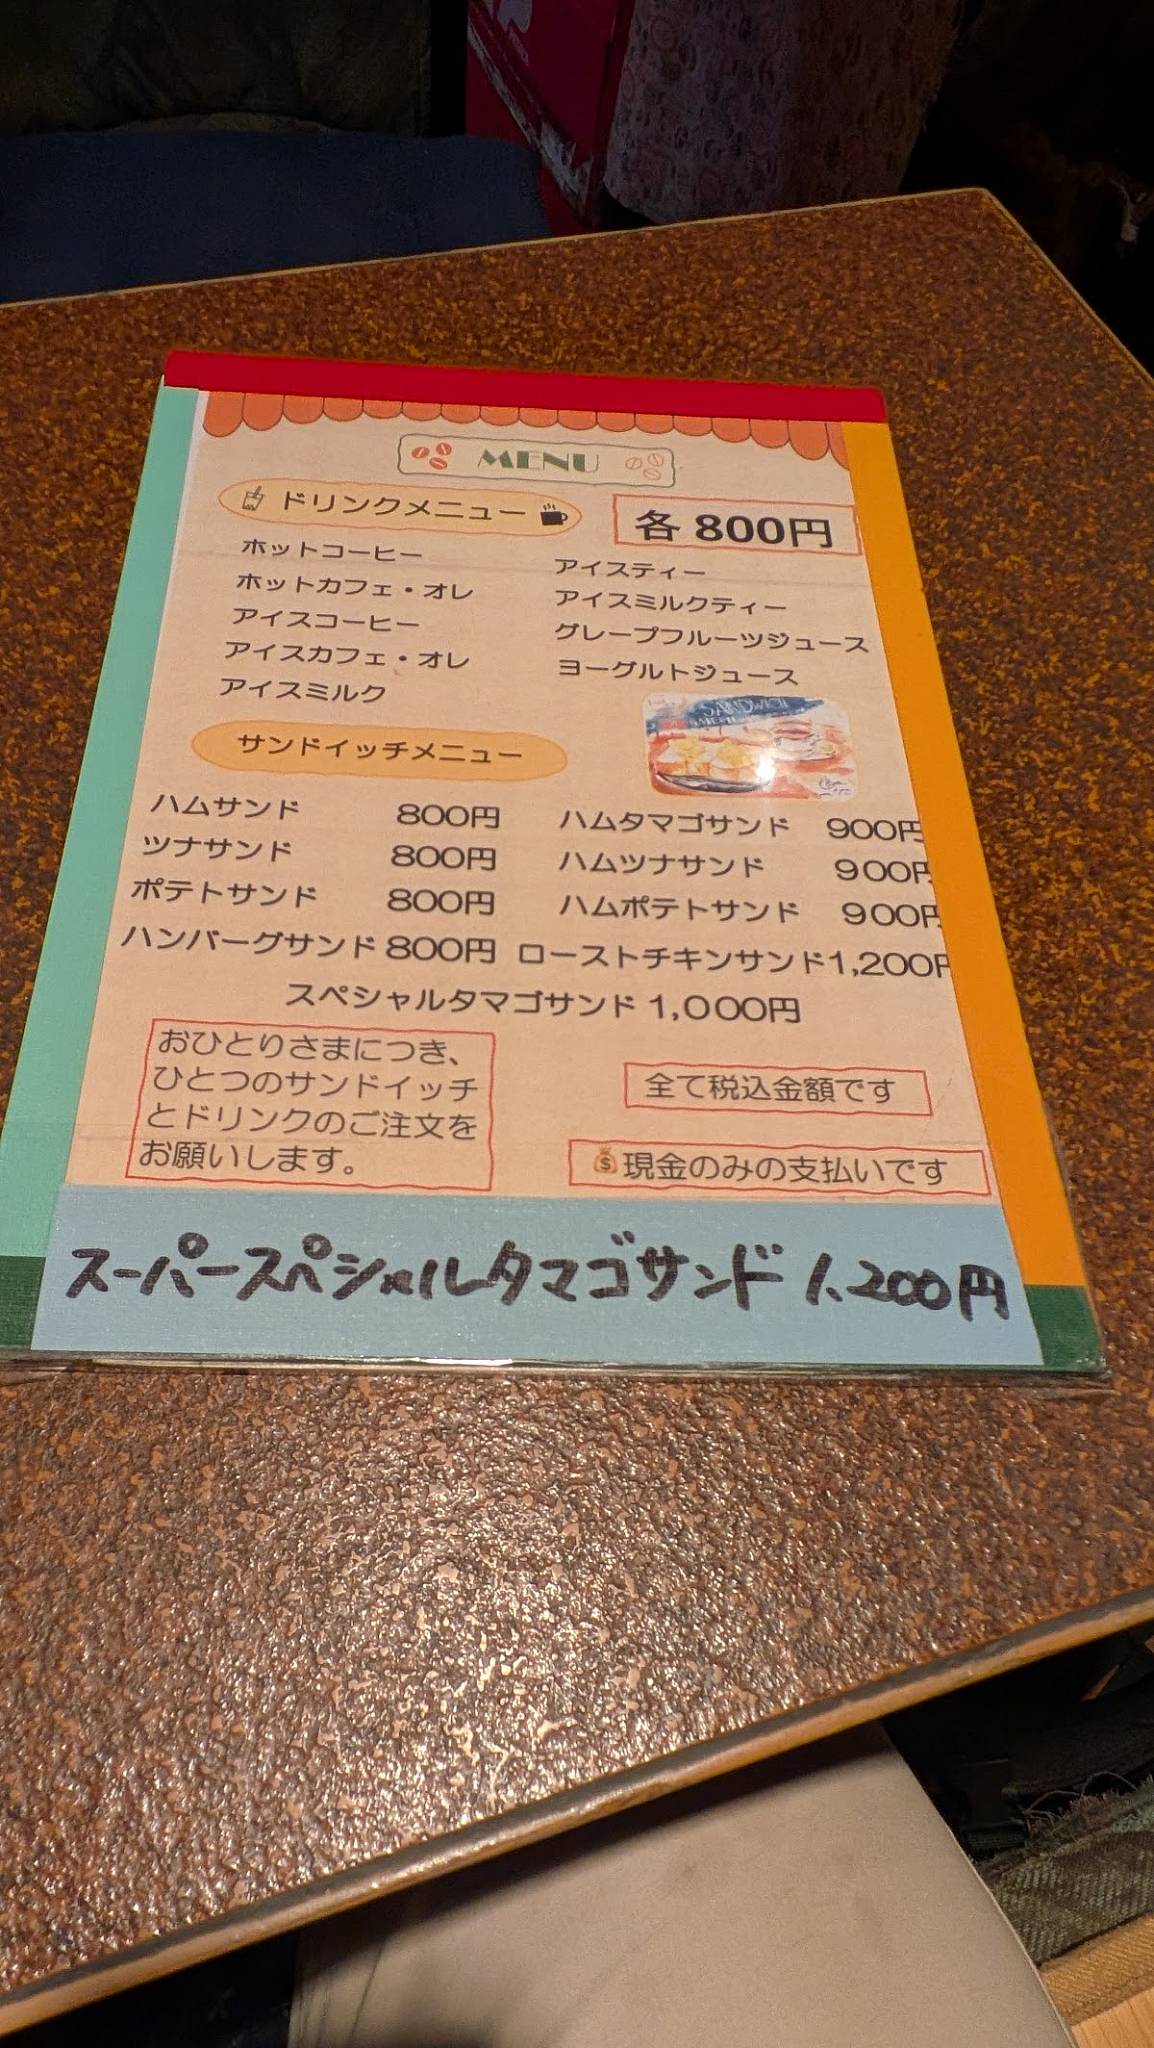 MENU
ドリンクメニュー
各800円
ホットコーヒー
ホットカフェ・オレ
アイスコーヒー
アイスカフェ・オレ
アイスミルク
アイスティー
アイスミルクティー
グレープフルーツジュース
ヨーグルトジュース
SANDWICH
サンドイッチメニュー
ハムサンド 800円
ツナサンド 800円
ポテトサンド 800円
ハンバーグサンド 800円
ハムタマゴサンド 900円
ハムツナサンド 900円
ハムポテトサンド 900円
ローストチキンサンド1,200円
スペシャルタマゴサンド 1,000円
おひとりさまにつき、
ひとつのサンドイッチ
とドリンクのご注文を
お願いします。
全て税込金額です
現金のみの支払いです
スーパースペシャルタマゴサンド 1,200円